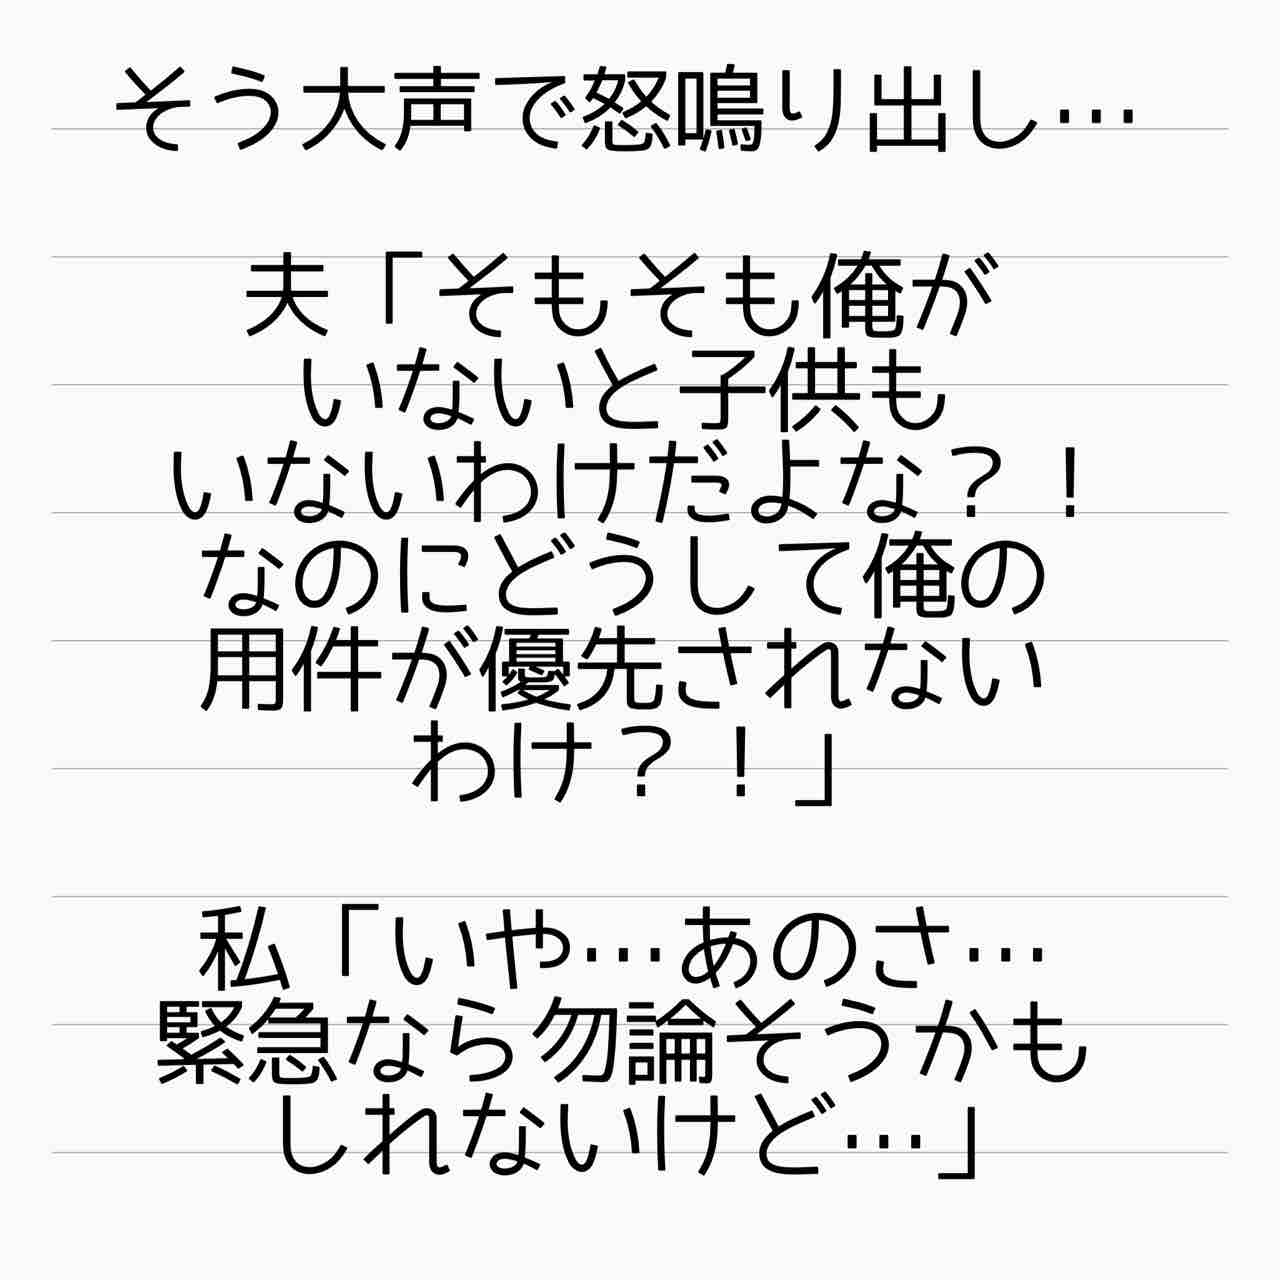 そう大声で怒鳴り出し…
夫「そもそも俺が
いないと子供も
いないわけだよな？！
なのにどうして俺の
用件が優先されない
わけ？！」
私「いや…あのさ…
緊急なら勿論そうかも
しれないけど…」